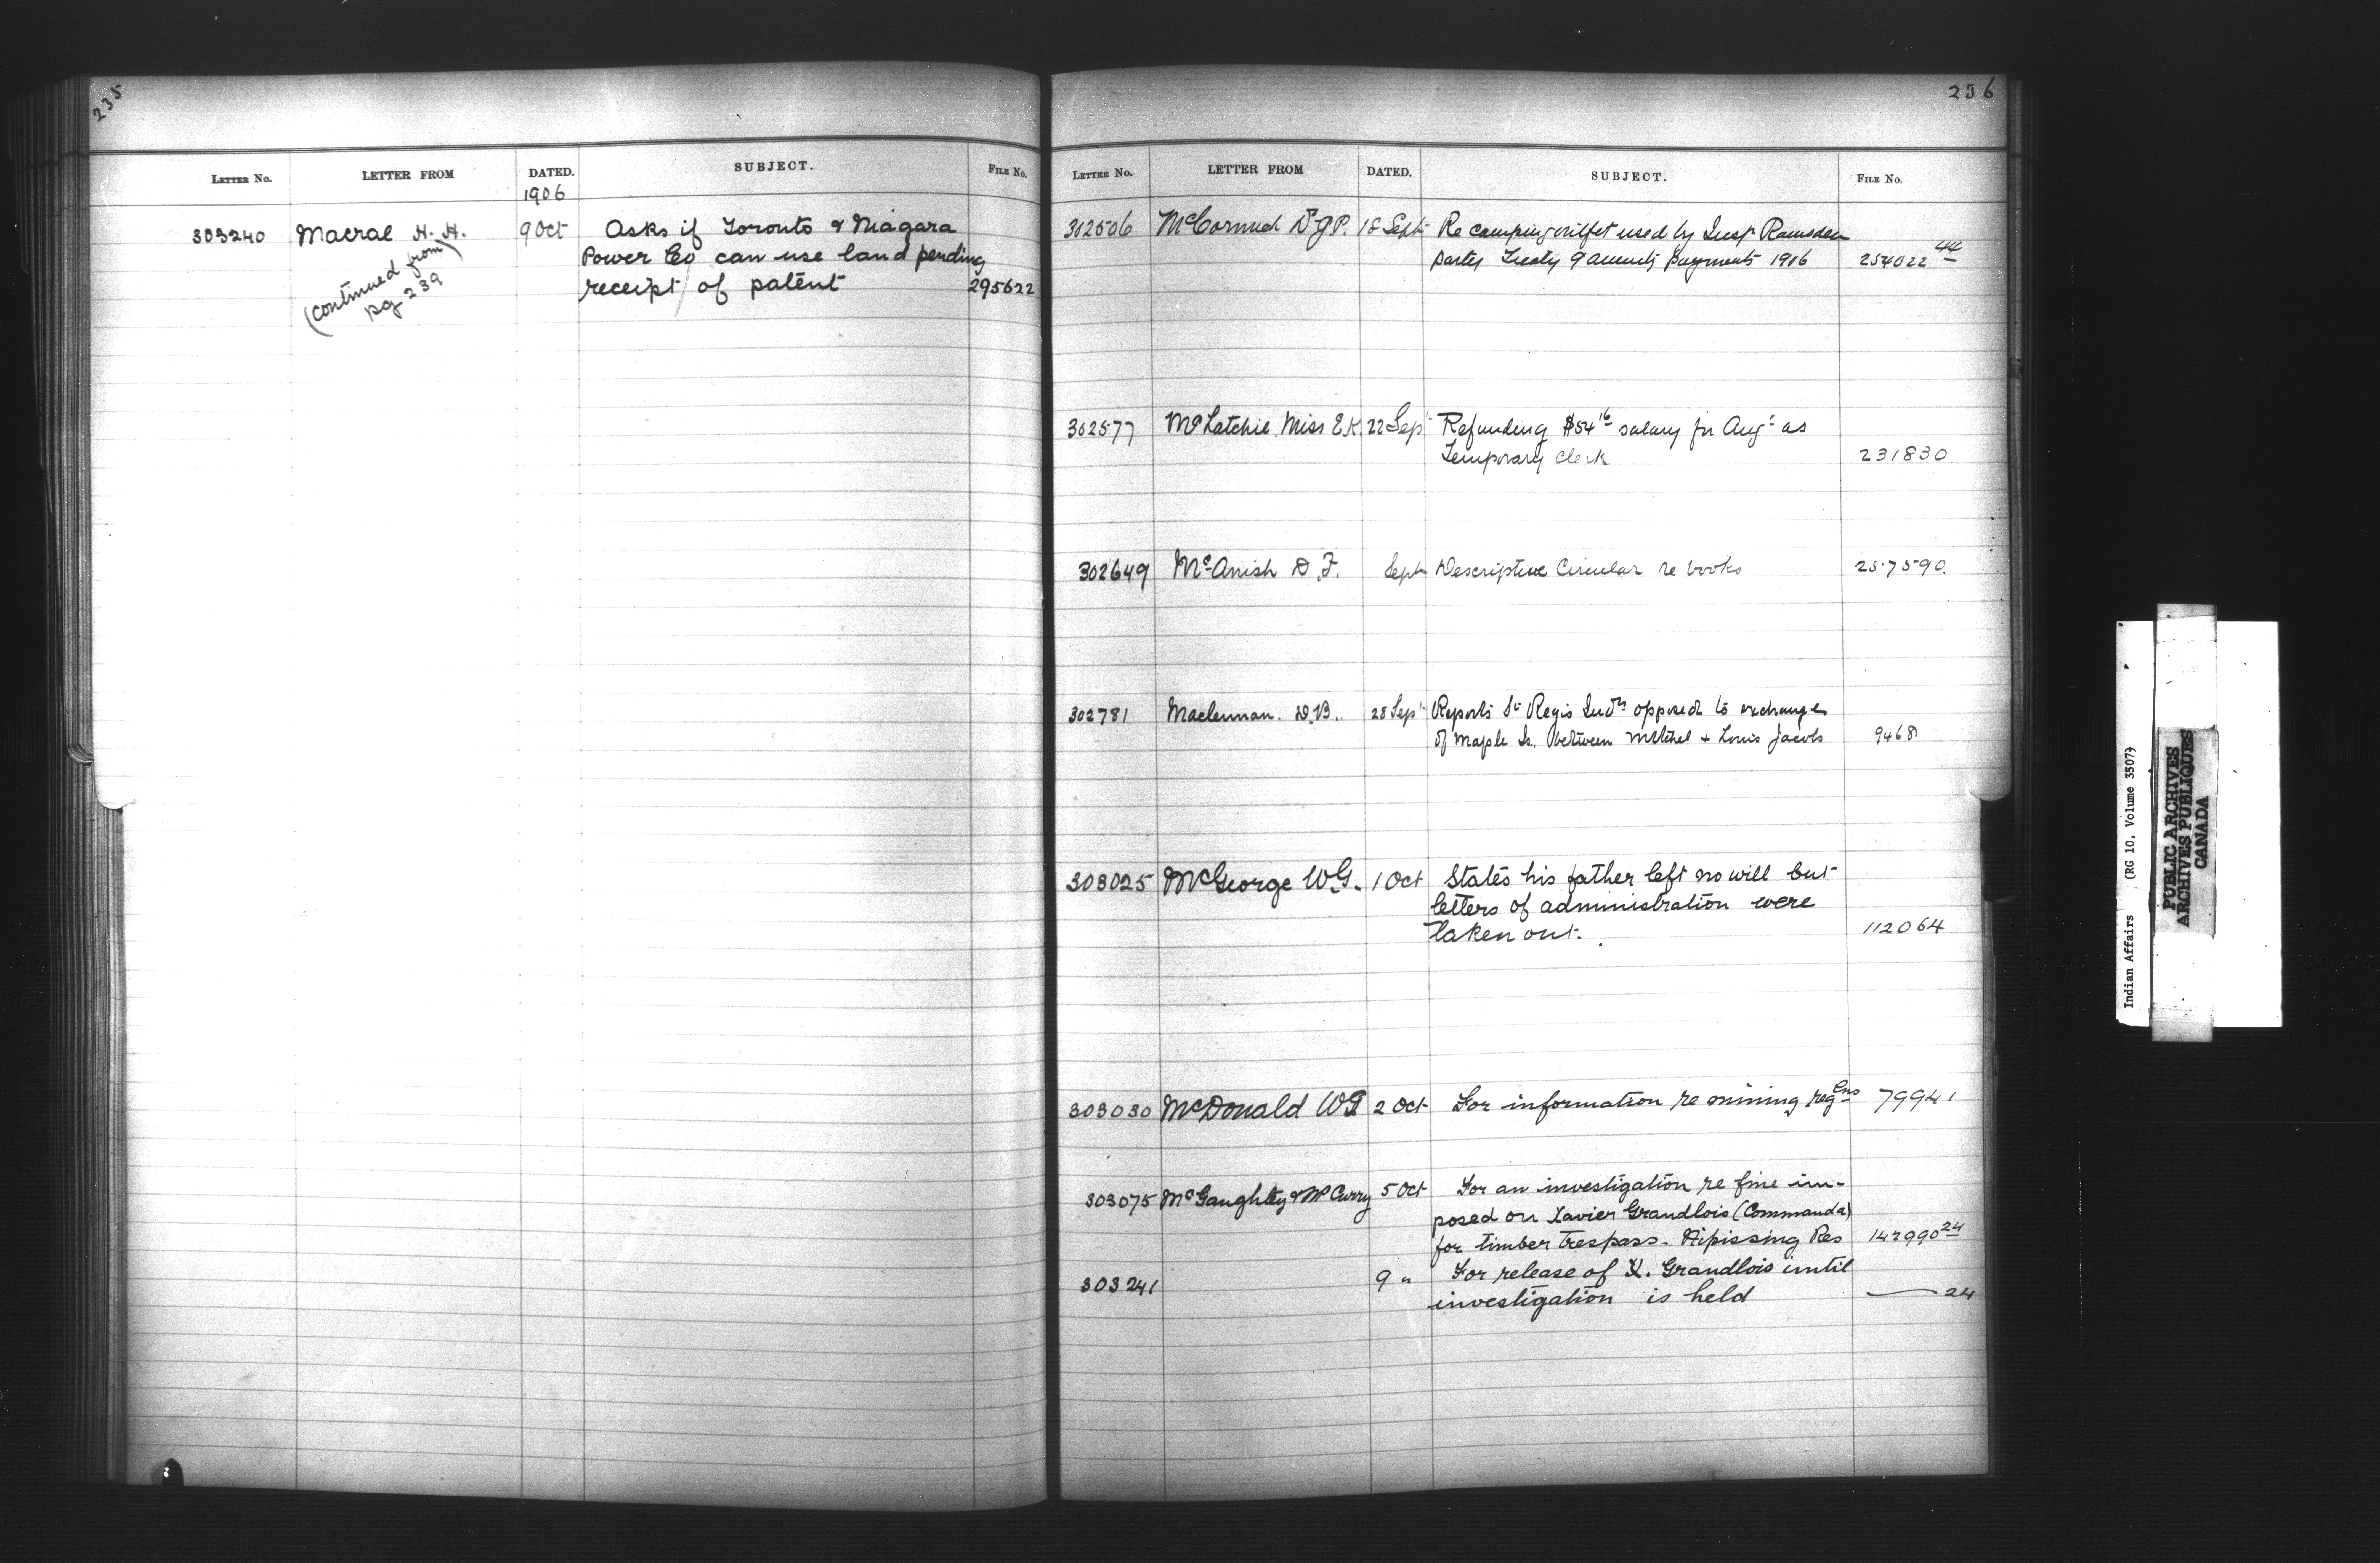 235
LETTER No. LETTER FROM DATED. SUBJECT. FILE No.
1906
303240 Macrae H. H. 9 Oct Asks if Toronto & Niagara
Power Co can use land pending
receipt of patent 295622
(continued from
pg 239)
236
LETTER No. LETTER FROM DATED. SUBJECT. FILE No.
302506 McCormick 18 Sept Re camping outfit used by Insp Ramsden
party Treaty 9 annuity payments 1906 254022 44
302577 McLatchie, Miss E.K 22 Sept Refunding $54 16 salary for Augt as
Temporary Clerk 231830
302649 McAnish D. F. Sept Descriptive Circular re books 257590.
302781 Maclennan. D.B. 28 Sept Reports St Regis Inds opposed to exchange
of Maple Is. between Mitchel & Louis Jacobs 9468
303025 McGeorge W.G. 1 Oct States his father left no will but
letters of administration were
taken out. 112064
303030 McDonald 2 Oct For information re mining regns 79941
303075 McGaughey & McCurry 5 Oct For an investigation re fine im-
posed on Xavier Grandlois (Commanda)
for timber trespass - Nipissing Res 142990 24
303241 9 " For release of X. Grandlois until
investigation is held — 24
Indian Affairs (RG 10, Volume 3507)
PUBLIC ARCHIVES
ARCHIVES PUBLIQUES
CANADA